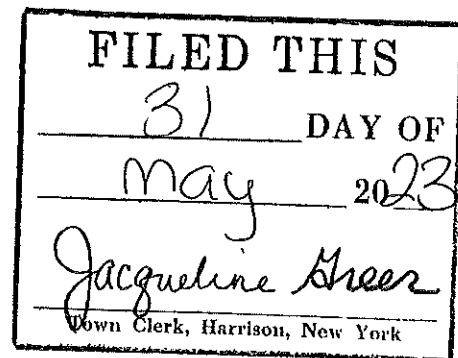 FILED THIS
31 DAY OF
May 2023
Jacqueline Greer
Town Clerk, Harrison, New York